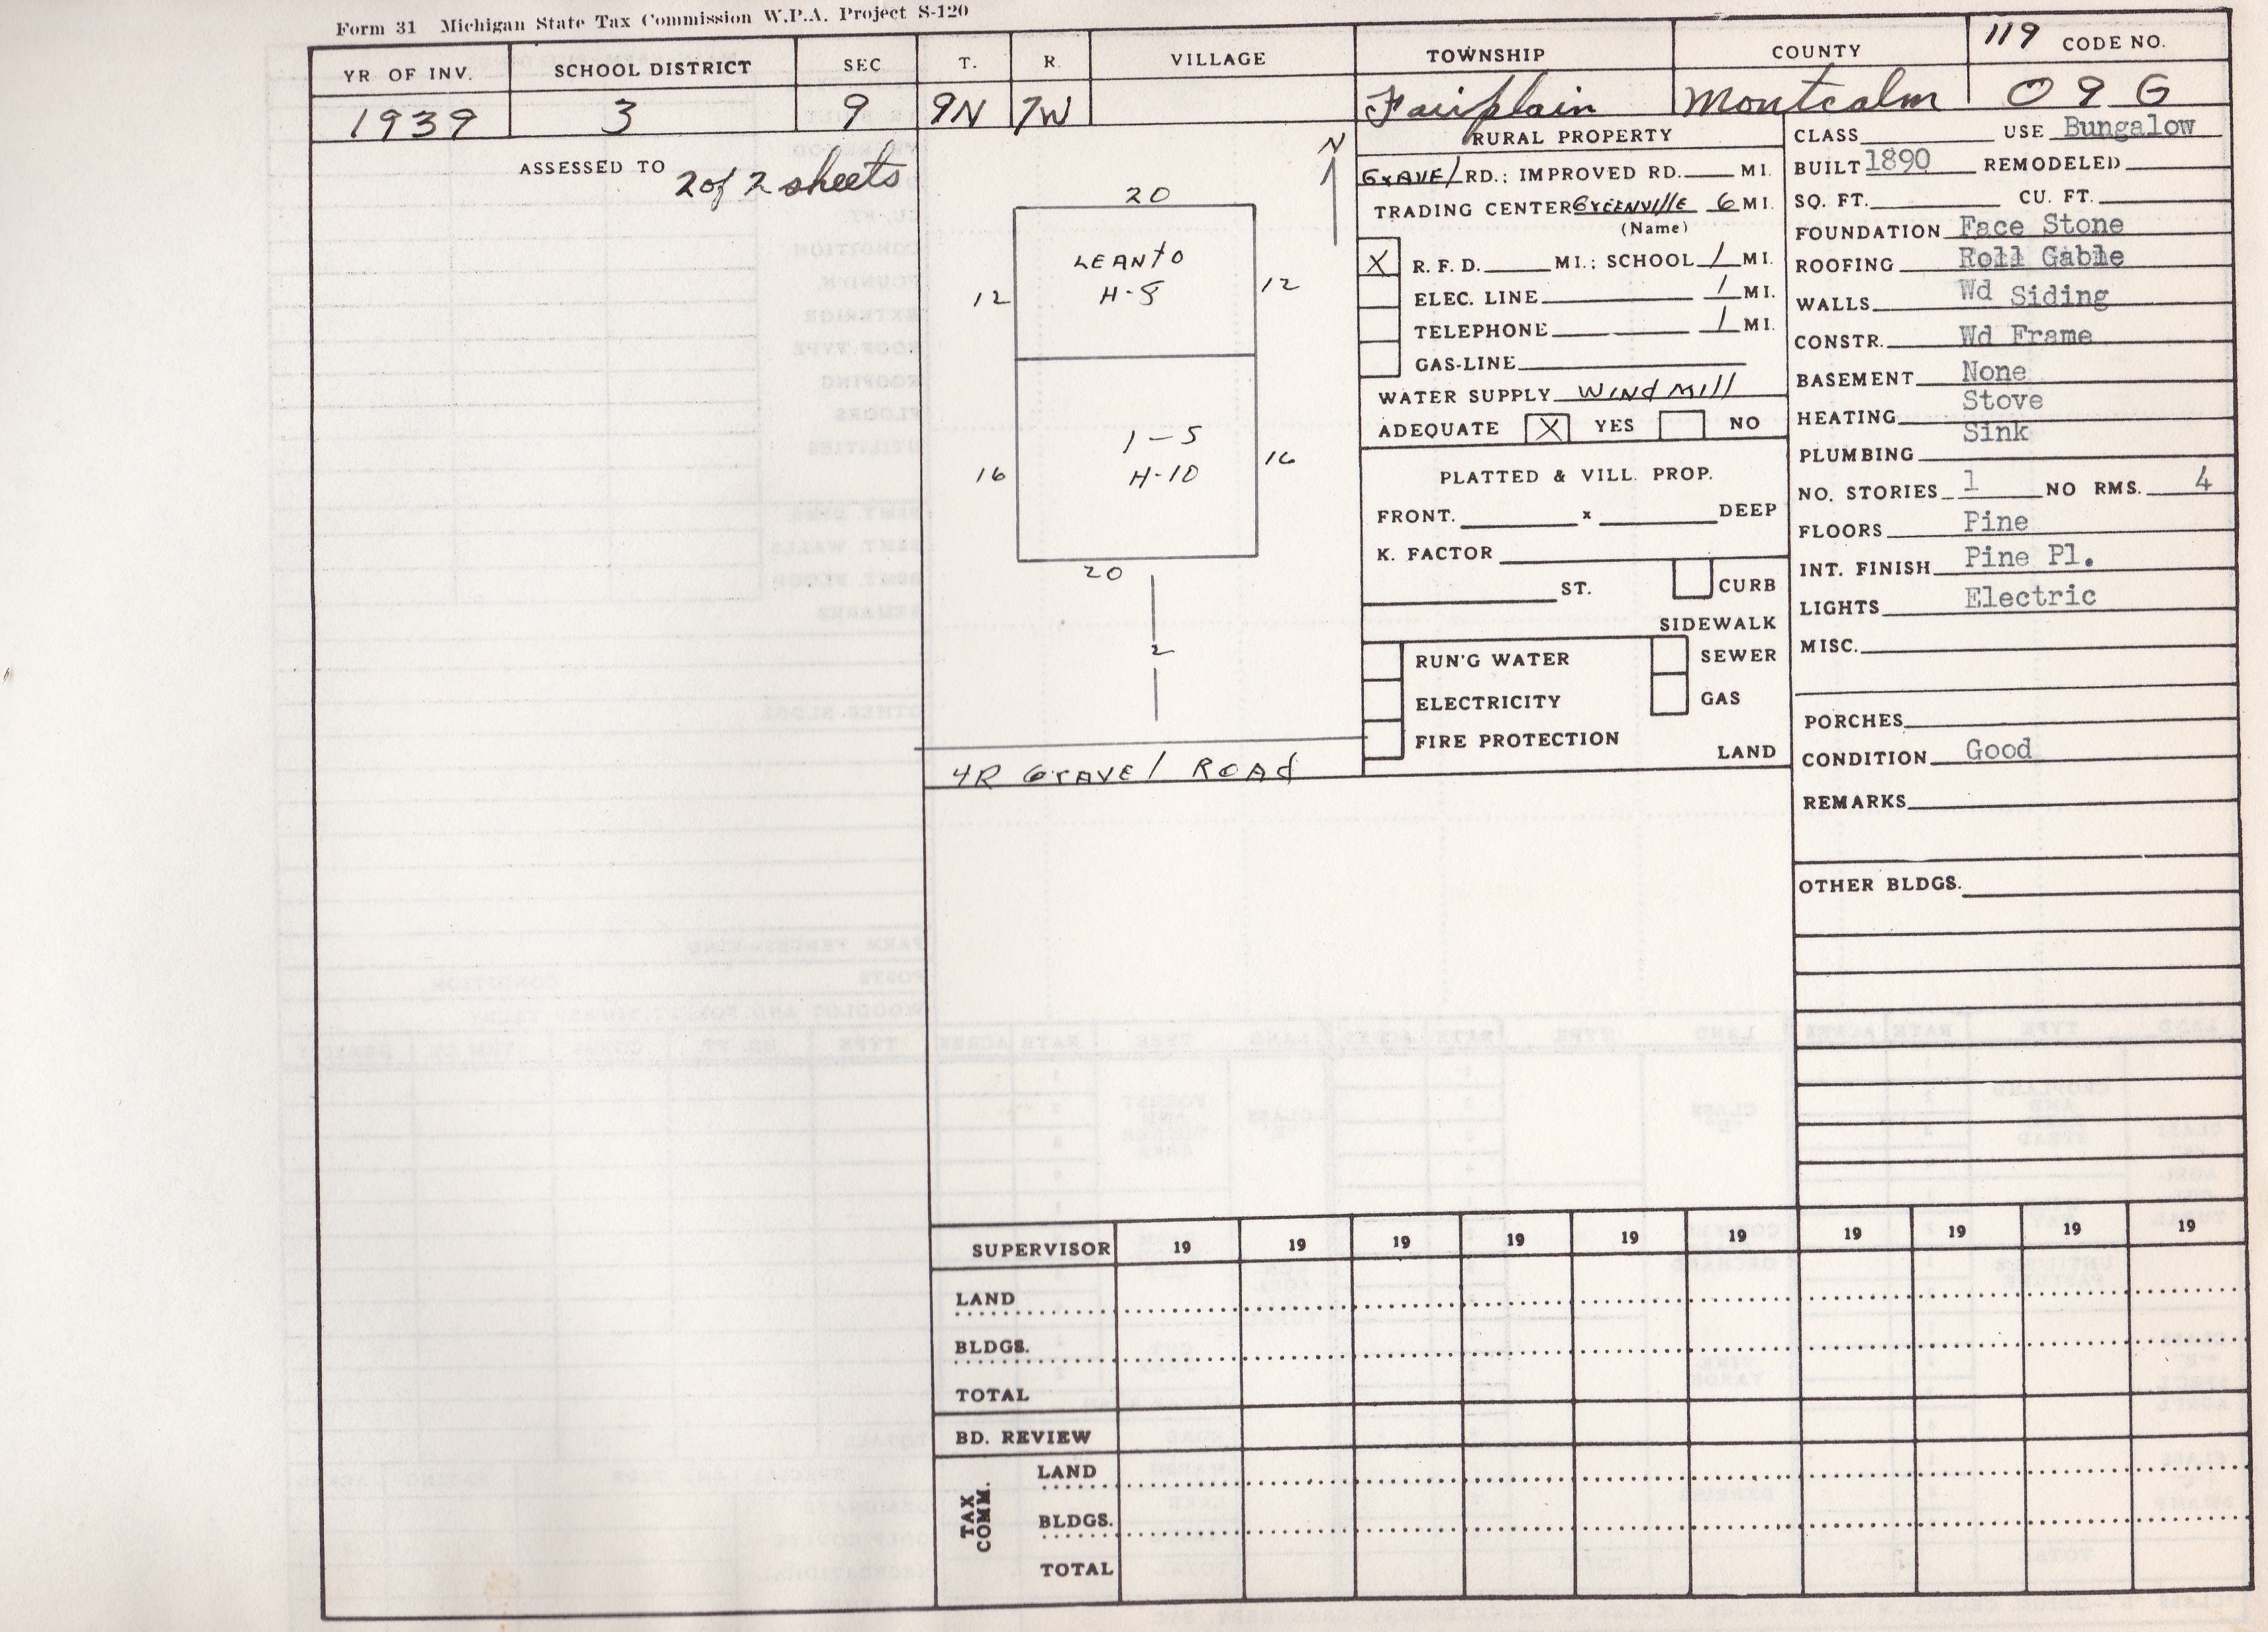 Form 31 Michigan State Tax Commission W.P.A. Project S-120
YR OF INV. SCHOOL DISTRICT SEC T. R. VILLAGE TOWNSHIP COUNTY 119 CODE NO.
1939 3 9 9N 7W Fairplain Montcalm 09G
ASSESSED TO 2 of 2 sheets
N
20
LEANTO
H-8
12 12
1-S
H-10
16 16
20
2
4R GrAVEl ROAd
RURAL PROPERTY
GrAVEl RD.: IMPROVED RD. MI.
TRADING CENTER GrEENVIllE 6 MI.
(Name)
X R. F. D. MI.; SCHOOL 1 MI.
ELEC. LINE 1 MI.
TELEPHONE 1 MI.
GAS-LINE
WATER SUPPLY WINd MIll
ADEQUATE X YES NO
PLATTED & VILL. PROP.
FRONT. x DEEP
K. FACTOR
ST. CURB
SIDEWALK
RUN'G WATER SEWER
ELECTRICITY GAS
FIRE PROTECTION
LAND
CLASS USE Bungalow
BUILT 1890 REMODELED
SQ. FT. CU. FT.
FOUNDATION Face Stone
ROOFING Roll Gable
WALLS Wd Siding
CONSTR. Wd Frame
BASEMENT None
HEATING Stove
PLUMBING Sink
NO. STORIES 1 NO RMS. 4
FLOORS Pine
INT. FINISH Pine Pl.
LIGHTS Electric
MISC.
PORCHES
CONDITION Good
REMARKS
OTHER BLDGS.
SUPERVISOR 19 19 19 19 19 19 19 19 19 19
LAND
BLDGS.
TOTAL
BD. REVIEW
TAX COMM.
LAND
BLDGS.
TOTAL